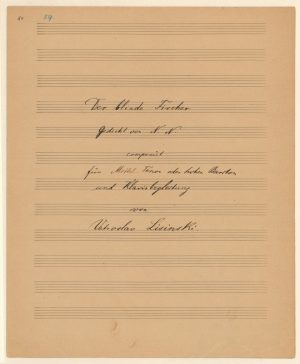 59
Der blinde Fischer
Gedicht von N. N.
componirt
für Mezzo. Tenor oder hohen Bariton
und Klavierbegleitung
von
Vatroslav Lisinski.